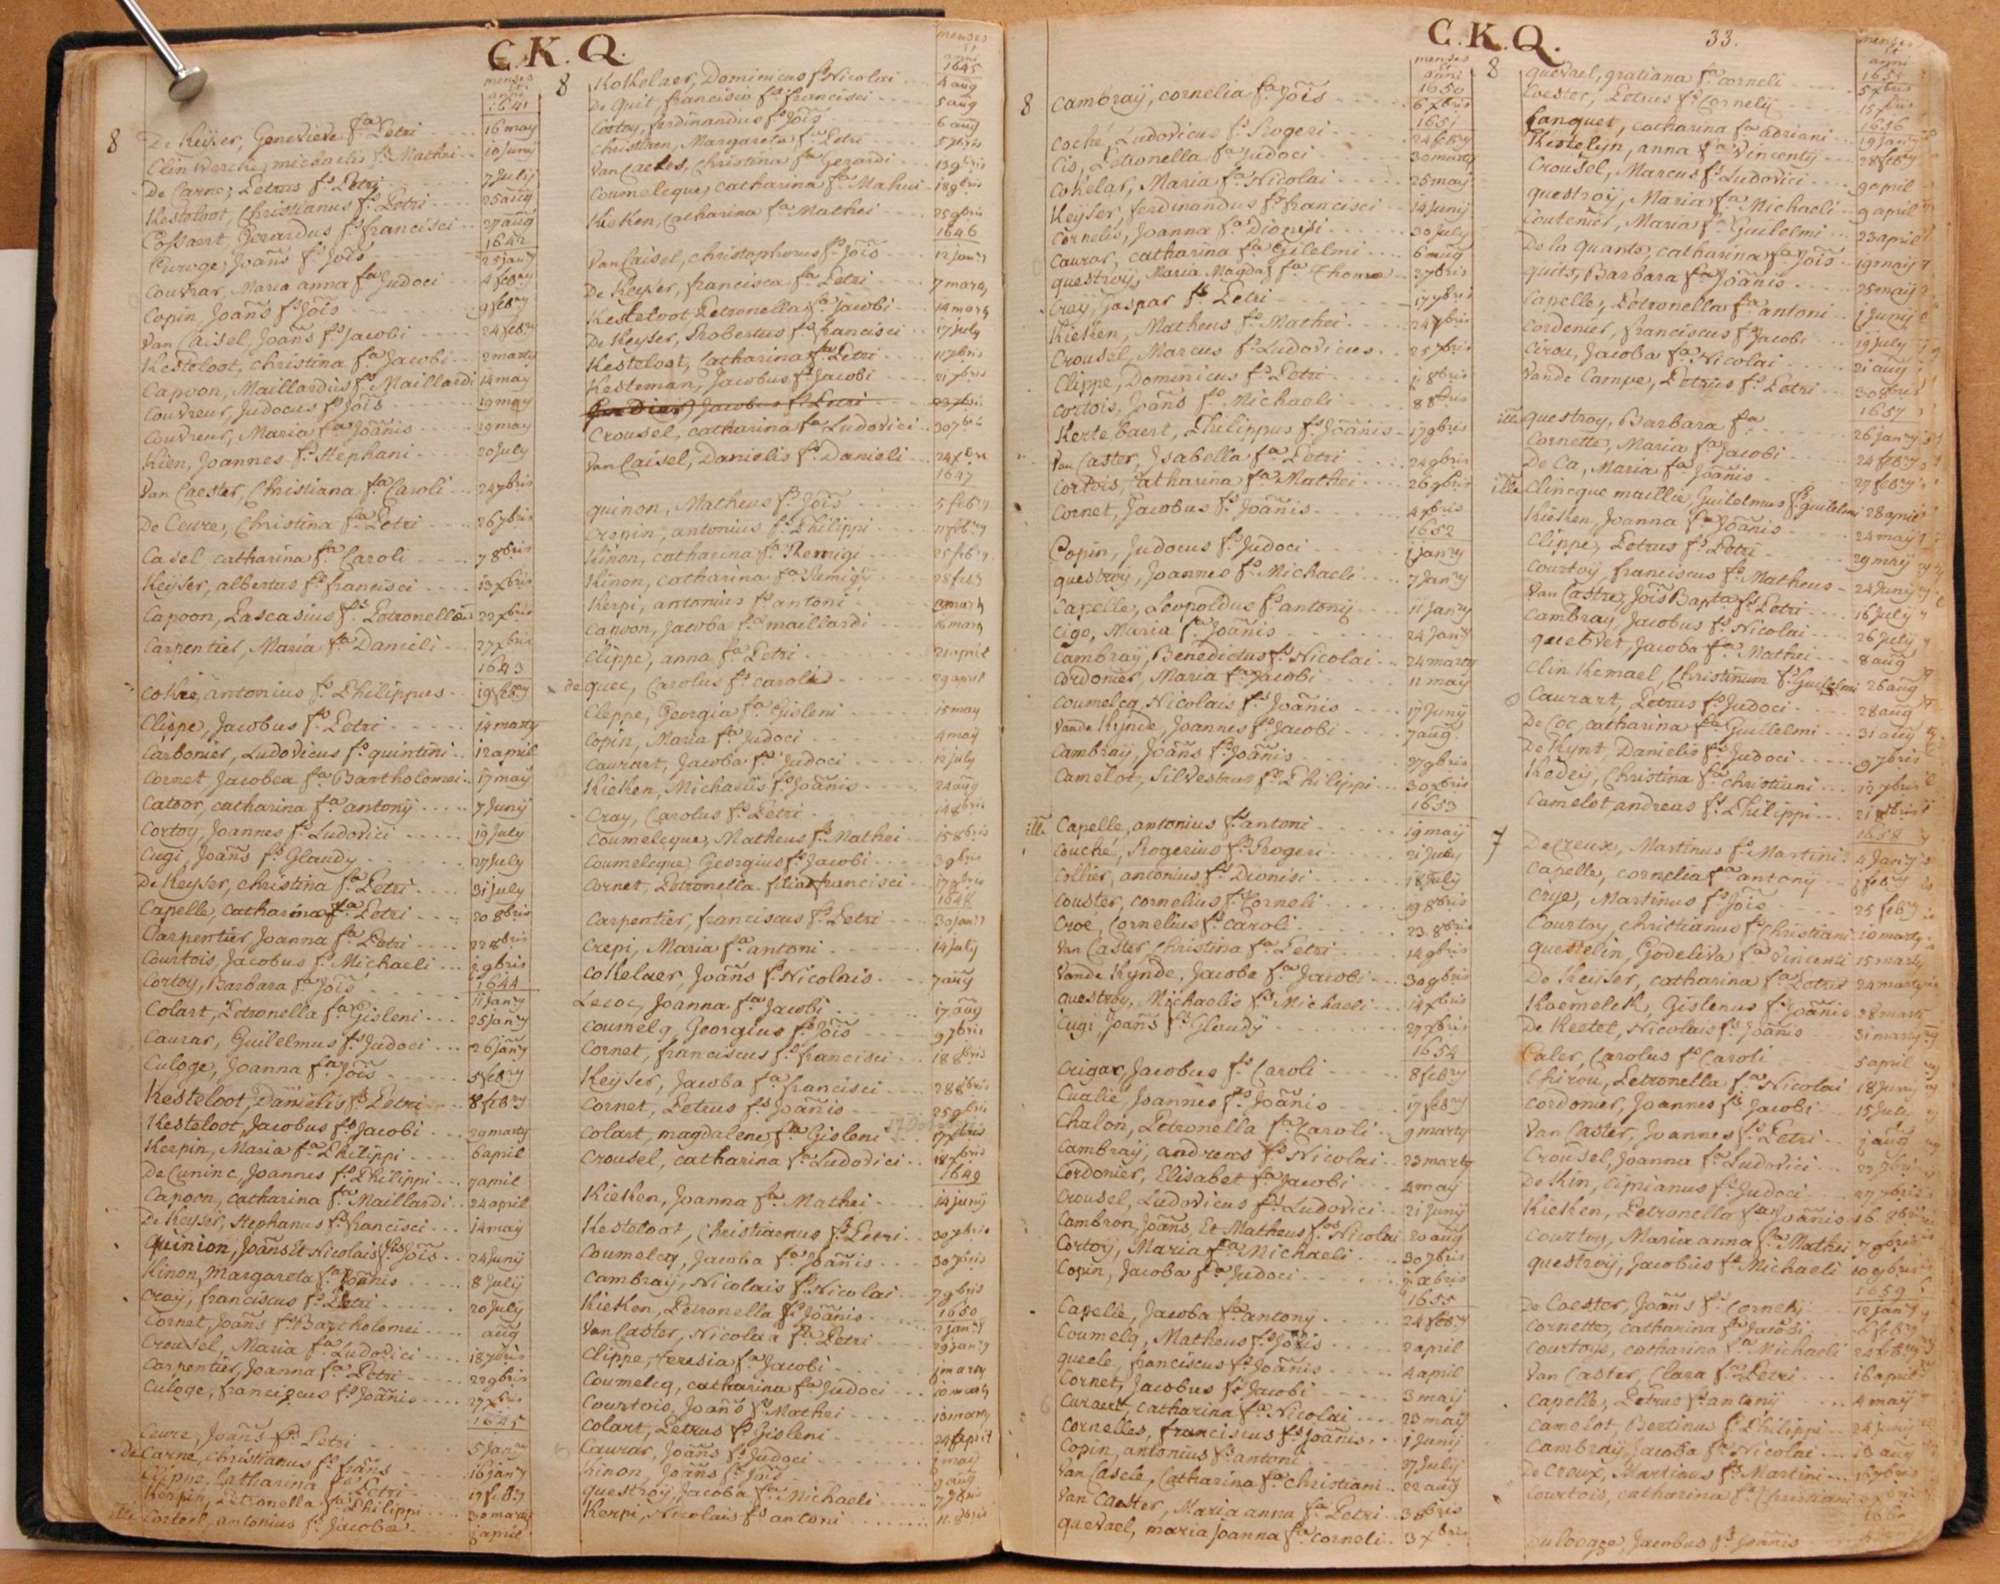 C. K. Q.
menses
et
anni
1641
8 De Keijser, Genevieve fa Petri 16 may
Clinwercke, michaelis fs Mathei 10 Junij
De Carne, Petrus fs Petri 7 July
Kesteloot, Christianus fs Petri 25 aug
Cossaert, Gerardus fs francisci 27 aug
1642
Joañs fs Jois 25 jany
Couvrar, Maria anna fa Judoci 4 feby
Copin, Joañs fs Jois 9 feby
Van Caisel, Joañs fs Jacobi 24 feby
Kesteloot, Christina fa Jacobi 2 marty
Capoon, Maillardus fs Maillardi 14 may
Couvreur, Judocus fs Jois 19 may
Couvreur, Maria fa Joãnis 29 may
Kien, Joannes fs Stephani 20 July
Van Caester, Christiana fa Caroli 24 7bris
De Ceure, Christina fa Petri 26 7bris
Casel catharina fa Caroli 7 8bris
Keijser, albertus fs francisci 13 xbris
Capoon, Pascasius fs Petronella 22 xbris
Carpentier, Maria fa Danieli 27 xbris
1643
Cokie, antonius fs Philippus 19 feby
Clippe, Jacobus fs Petri 14 marty
Carbonier, Ludovicus fs quintini 12 april
Cornet Jacobea fa Bartholomei 17 may
Catoor, catharina fa antonij 7 Junij
Cortoy, Joannes fs Ludovici 19 July
Cugi, Joañs fs Glaudy 27 July
De Keyser, christina fa Petri 31 july
Capelle, Catharina fa Petri 20 8bris
Carpentier Joanna fa Petri 22 8bris
Courtois, Jacobus fs Michaeli 2 9bris
1644
Cortoy, Barbara fa Jois 11 Jany
Colart, Petronella fa Gisleni 25 jany
Caurar, Guilelmus fs Judoci 26 jany
Culoge, Joanna fa Jois 5 feby
Kesteloot, Danielis fs Petri 8 feby
Kesteloot, Jacobus fs Jacobi 29 marty
Kerpin, Maria fa Philippi 6 april
De Cuninc, Joannes fs Philippi 7 april
Capoon, catharina fa Maillardi 24 april
De Keyser, Stephanus fs francisci 14 may
Quinion, Joañs Et Nicolais fis Jois 24 Junij
Kinon, Margareta fa Joãnis 8 July
Croij, franciscus fs Petri 20 July
Cornet, Joañs fs Bartholomei aug
Crousel, Maria fa Ludovici 18 7bris
Carpentier, Joanna fa Petri 22 9bris
Culoge, franciscus fs Joãnis 27 xbris
1645
Ceure, Joañs fs Petri 5 jany
de Carne, Christianus fs frañs 16 jany
Clippe, Catharina fa Petri 17 feby
Kerpin, Petronella fa Philippi 30 marty
antonius fs Jacoba april
menses
et
1645
8 Kokelaer, Dominicus fs Nicolai 4 aug
De Quit, francisco fs francisci 5 aug
Cortoy, ferdinandus fs Jois 6 aug
Christiaen, Margareta fa Petri 5 7bris
Van Caeles, Christina fa Gerardi 13 9bris
Coumelcque, catharina fa Mahui 18 9bris
Kieken, Catharina fa Mathei 25 9bris
1646
Van Caisel, christophorus fs Jois 12 jany
De Keyser, francisca fa Petri 7 marty
Kesteloot Petronella fa Jacobi 14 marty
De Keyser, Robertus fs francisci 17 july
Kesteloot, Catharina fa Petri 11 7bris
Kesteman, Jacobus fs Jacobi 21 7bris
Jacobus fs Petri 23 7bris
Crousel, catharina fa Ludovici 30 7bris
Van Caisel, Danielis fs Danieli 24 xbris
1647
quinon, Matheus fs Jois 5 feby
Crepin, antonius fs Philippi 11 feby
Kinon, catharina fa Remigi 25 feby
Kinon, Catharina fa Remigij 28 feby
Kerpi, antonius fs antoni 3 marty
Capoon, Jacoba fa maillardi 16 marty
Clippe, anna fa Petri 21 april
de quec, Carolus fs caroli 29 april
Cleppe, Georgia fa Gisleni 15 may
Copin, Maria fa Judoci 4 may
Caurart, Jacoba fa Judoci 12 july
Kieken, Michaelis fs Joãnis 24 aug
Cray, Carolus fs Petri 14 8bris
Coumelcque, Matheus fs Mathei 15 8bris
Coumelcque, Georgius fs Jacobi 3 9bris
Cornet, Petronella filia francisci 17 9bris
1648
Carpentier, franciscus fs Petri 30 jany
Crepi, Maria fa antoni 14 july
Cokelaer, Joañs fs Nicolais 7 aug
Lecoc, Joanna fa Jacobi 17 aug
Coumelq, Georgius fs Jois 9 7bris
Cornet, franciscus fs francisci 18 8bris
Keyser, Jacoba fa francisci 28 8bris
Cornet, Petrus fs Joãnis 25 9bris
Colart, magdalene fa Gisleni 17 xbris
Crousel, catharina fa Ludovici 18 xbris
1649
Kieken, Joanna fa Mathei 14 junij
Kesteloot, Christianus fs Petri 30 7bris
Coumelcq, Jacoba fa Joãnis 30 7bris
Cambraij, Nicolais fs Nicolai 7 9bris
1650
Kieken, Petronella fa Joãnis 2 jany
Van Caster, Nicolaa fa Petri 29 jany
Clippe, Teresia fa Jacobi 1 marty
Coumelcq, catharina fa Judoci 10 marty
Courtois, Joañs fs Mathei 13 marty
Colart, Petrus fs Gisleni 24 april
Caurar, Joañs fs Judoci may
Kinon, Joañs fs Jois aug
questroy, Jacoba fa Michaeli 7 7bris
Kerpi, Nicolais fs antoni 11 8bris
C. K. Q.
33.
menses
et
anni
1650
8 Cambraij, cornelia fa Jois 6 xbris
1651
Coché, Ludovicus fs Rogeri 24 feby
Cis, Petronella fa Judoci 30 marty
Cokelar, Maria fa Nicolai 25 may
Keyser, ferdinandus fs francisci 14 Junij
Cornelis, Joanna fa Dionisi 30 July
Caurar, catharina fa Gilelmi 6 aug
questroy, Maria Magda fa Thomæ 3 7bris
Croij, Jaspar fs Petri 17 7bris
Kieken, Matheus fs Mathei 24 7bris
Crousel, Marcus fs Ludovicus 25 7bris
Clippe, Dominicus fs Petri 1 8bris
Cortois, Joañs fs Michaeli 8 8bris
Kerte baert, Philippus fs Joãnis 17 9bris
Van Caster, Isabella fa Petri 24 9bris
Cortois, Catharina fa Mathei 26 9bris
Cornet, Jacobus fs Joãnis 4 xbris
1652
Copin, Judocus fs Judoci 1 Jany
questroij, Joannes fs Michaeli 7 Jany
Capelle, Leopoldus fs antonij 11 Jany
Cigo, Maria fa Joãnis 24 Jany
Cambraij, Benedictus fs Nicolai 24 marty
Cordonier, Maria fa Jacobi 12 may
Coumelcq, Nicolais fs Joãnis 17 Junij
Vande Kijnde, Joannes fs Jacobi 7 aug
Cambraij, Joañs fs Joãnis 27 9bris
Camelot, Silvestrus fs Philippi 30 xbris
1653
ill. Capelle, antonius fs antoni 19 maij
Couché, Rogerius fs Rogeri 21 July
Collier, antonius fs Dionisi 18 July
Couster, cornelius fs Corneli 19 8bris
Croé, Cornelius fs Caroli 23 8bris
Van Caster, Christina fa Petri 14 9bris
Vande Kynde, Jacoba fa Jacobi 30 9bris
questroy, Michaelis fs Michaeli 14 xbris
Cugi, Joañs fs Glaudij 27 xbris
1654
Crigar, Jacobus fs Caroli 8 feby
Cualie, Joannes fs Joãnis 17 feby
Chalon, Petronella fa Caroli 9 marty
Cambraij, andreas fs Nicolai 23 marty
Cordonier, Elisabet fa Jacobi 4 may
Crousel, Ludovicus fs Ludovici 21 Junij
Cambron, Joañs Et Matheus fis Nicolai 20 aug
Cortoij, Maria fa Michaeli 30 7bris
Copin, Jacoba fa Judoci
1655
Capelle, Jacoba fa antony 24 feby
Coumelq, Matheus fs Jois 2 april
quecle, franciscus fs Joãnis 4 april
Cornet, Jacobus fs Jacobi 3 maij
Curaert, catharina fa Nicolai 23 maij
Cornelles, franciscus fs Joãnis 1 Junij
Copin, antonius fs antoni 27 July
Van Cascle, Catharina fa Christiani 22 aug
Van Caester, Maria anna fa Petri 30 8bris
quevael, maria Joanna fa Corneli 3 xbris
menses
et
anni
1655
8 quevael, gratiana fa Corneli 5 xbris
Coester, Petrus fs Cornely 15 xbris
1656
Canquet, catharina fa adriani 19 jany
Kestelyn, anna fa Vincenty 28 feby
Crousel, Marcus fs Ludovici 9 april
questroij, Maria fa Michaeli 9 april
Coutenier, Maria fa Guilelmi 23 april
De la quants, catharina fa Jois 19 may
quits, Barbara fa Joãnis 25 may
Capelle, Petronella fa antoni 1 Junij
Cordenier, franciscus fs Jacobi 19 july
Cirou, Jacoba fa Nicolai 21 aug
Vande Campe, Petrus fs Petri 30 8bris
1657
ill. questroy, Barbara fa 26 jany
Cornette, Maria fa Jacobi 24 feby
De Ca, Maria fa Joãnis 27 feby
ill. Clincque maillie Guilelmus fs guilelmi 28 april
Kieken, Joanna fa Joãnis 24 may
Clippe, Petrus fs Petri 29 may
Courtoy, franciscus fs Matheus 24 Junij
Van Castre, Jois Bapta fs Petri 16 July
Cambray, Jacobus fs Nicolai 26 July
quebvet, Jacoba fa Mathei 8 aug
Clin Kemael, Christinum fs Guilelmi 26 aug
Caurart, Petrus fs Judoci 28 aug
De Coc, catharina fa Guilelmi 31 aug
De Kynt, Danielis fs Judoci 9 7bris
Kodeij, Christina fa Christiani 17 7bris
Camelot andreas fs Philippi 21 8bris
1658
7 De Creux, Martinus fs Martini 4 Jany
Capelle, cornelia fa antony 1 feby
Crije, Martinus fs Jois 25 feby
Courtoy, Christianus fs Christiani 10 marty
Questelin, Godeliva fa Vincenti 15 marty
De Keyser, catharina fa Petri 24 marty
Kaemelck, Gislenus fs Joãnis 28 marty
De Kestel, Nicolais fs Joãnis 31 marty
Caler, Carolus fs Caroli 5 april
Chirou, Petronella fa Nicolai 18 Juny
Cordonier, Joannes fs Jacobi 15 Juli
Van Caster, Joannes fs Petri 1 aug
Crousel, Joanna fa Ludovici 22 7bris
De Kin, Ciprianus fs Judoci 27 7bris
Kieken, Petronella fa Joãnis 16 8bris
Courtoy, Maria anna fa Mathei 7 9bris
questroij, Jacobus fs Michaeli 10 9bris
1659
De Caester, Joañs fs Cornely 12 jany
Cornette, catharina fa Jacobi 8 feby
Courtoys, catharina fa Michaeli 24 feby
Van Caster, Clara fa Petri 16 april
Capelle, Petrus fs antonij 4 may
Camolot, Bertinus fs Philippi 24 junij
Cambraij, Jacoba fa Nicolai 13 aug
De Croux, Martinus fs Martini 16 7bris
Courtois, catharina fa Christiani
1660
Jacobus fs Joãnis